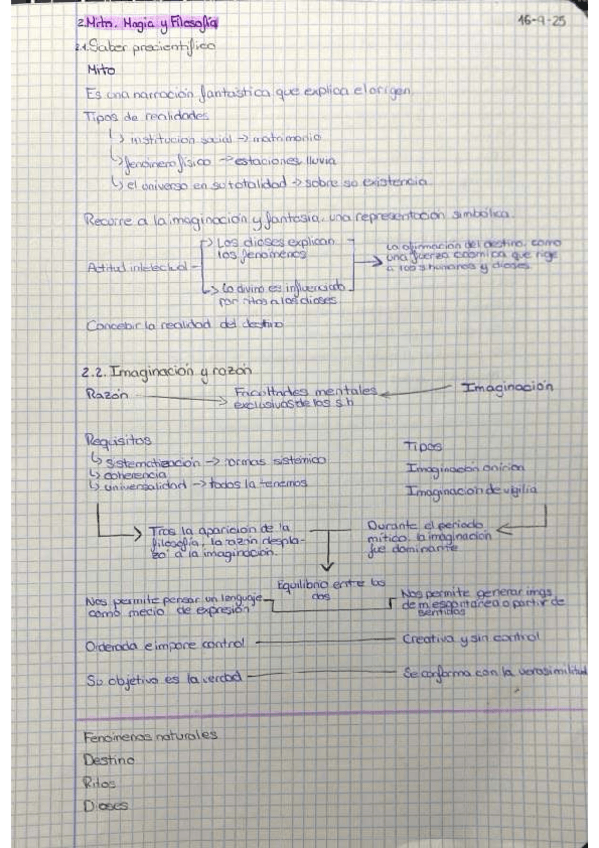 2. Mito. Magia y Filosofía
16-9-25
2.1. Saber precientífico
Mito
Es una narración fantástica que explica el origen
Tipos de realidades
↳ institucion social → matrimonio
↳ fenómeno físico → estaciones, lluvia
↳ el universo en su totalidad → sobre su existencia.
Recurre a la imaginación y fantasia, una representación simbólica.
Actitud intelectual
Los dioses explican
los fenómenos
Lo divino es influenciab.
por ritos a los dioses
La afirmación del destino, como
una fuerza cosmica que rige
a los humanos y dioses.
Concebir la realidad del destino
2.2. Imaginación y razón
Razón → Facultades mentales ← Imaginación
exclusivas de los s.h
Requisitos
↳ sistematización → sistémico
↳ coherencia
↳ universalidad → todos la tenemos
Tipos
Imaginación onírica
Imaginacion de vigilia
Tras la aparición de la
filosofía, la razón despla-
zó a la imaginación.
Durante el periodo
mítico, la imaginación
fue dominante
Equilibrio entre los
dos
Nos permite pensar un lenguaje
como medio de expresión
Nos permite generar imgs
de m. espontanea o partir de
sentidos
Ordenada e impone control
Creativa y sin control
Su objetivo es la verdad
Se conforma con la verosimilitud
Fenómenos naturales
Destino
Ritos
Dioses